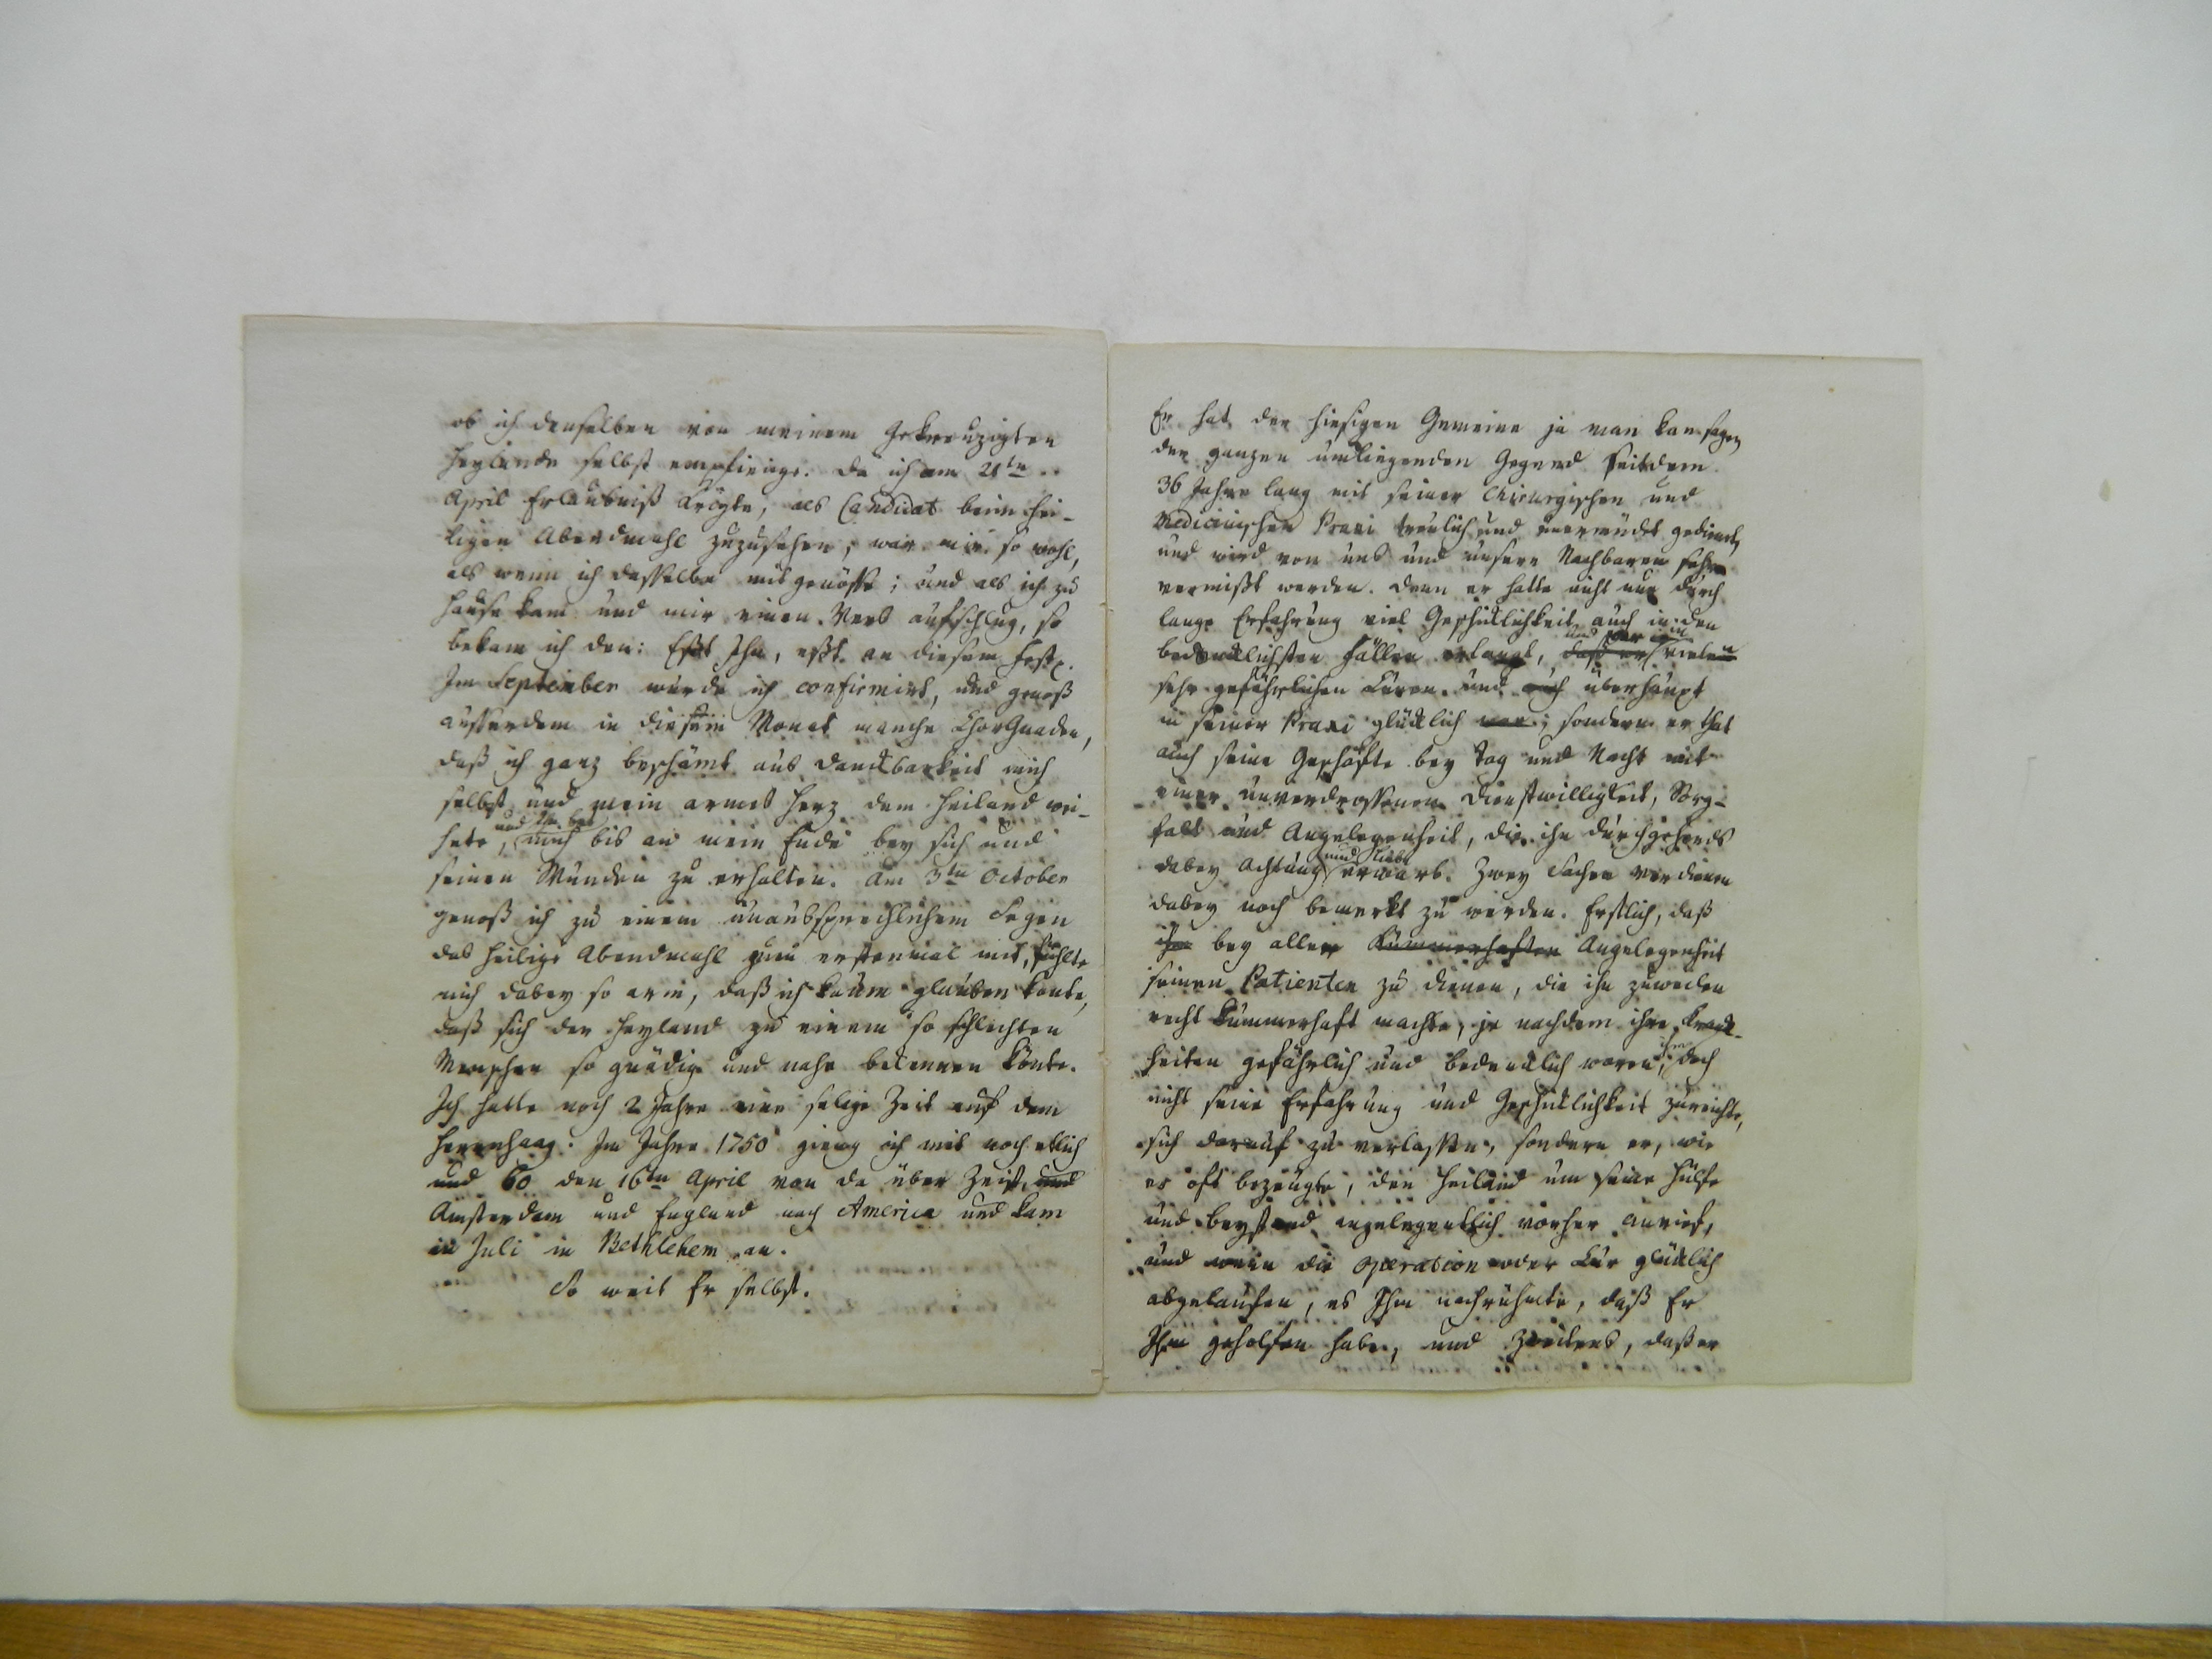 ob ich denselben von meinem gekreuzigten
Heylande selbst empfienge. Da ich am 21tn
April Erlaubniß krigte, als Candidat beim hei-
ligen Abendmahl zuzusehen, war mir so wohl,
als wenn ich dasselbe mit genösse; und als ich zu
Hause kam und mir einen Vers aufschlug, so
bekam ich den: Eßt Ihn, eßt an diesem Fest.
Im September wurde ich confirmirt, und genoß
ausserdem in diesem Monat manche Chor Gnaden,
daß ich ganz beschämt aus Danckbarkeit mich
selbst und mein armes Herz dem Heiland wei-
und Ihn bat
hete, mich bis an mein Ende bey sich und
seinen Wunden zu erhalten. Am 3tn October
genoß ich zu einem unaussprechlichem Segen
das heilige Abendmahl zum erstenmal mit, fühlte
mich dabey so arm, daß ich kaum glauben konte,
daß sich der Heyland zu einem so schlechten
Menschen so gnädig und nahe bekennen könte.
Ich hatte noch 2 Jahre eine selige Zeit auf dem
Herrnhaag. Im Jahre 1750 gieng ich mit noch etlich
und 60 den 16tn April von da über Zeist, und
Amsterdam und England nach America und kam
in Juli in Bethlehem an.
So weit Er selbst.
Er hat der hiesigen Gemeine ja man kan sagen
der ganzen umliegenden Gegend seitdem
36 Jahre lang mit seiner Chirurgischen und
Medicinischen Praxi treulich und unermüdet gedient,
und wird von uns und unsern Nachbaren sehr
vermißt werden. Denn er hatte nicht nur durch
lange Erfahrung viel Geschicklichkeit auch in den
und war in
bedencklichsten Fällen erlangt, daß er vielen
sehr gefährlichen Curen und auch überhaupt
in seiner Praxi glücklich war; sondern er that
auch seine Geschäfte bey Tag und Nacht mit
einer unverdrossenen Dienstwilligkeit, Sorg-
falt und Angelegenheit, die ihn durchgehends
und Liebe
dabey Achtung erwarb. Zwey Sachen verdienen
dabey noch bemerkt zu werden. Erstlich, daß
ihn bey aller kummerhaften Angelegenheit
seinen Patienten zu dienen, die ihn zuweilen
recht kummerhaft machte, je nachdem ihre Kranck-
ihm
heiten gefährlich und bedencklich waren, doch
nicht seine Erfahrung und Geschicklichkeit zureichte,
sich darauf zu verlassen, sondern er, wie
er oft bezeugte, den Heiland um seine Hülfe
und Beystand angelegentlich vorher anrief,
und wenn die Operation oder Cur glücklich
abgelaufen, es Ihm nachrühmte, daß Er
Ihm geholfen habe, und zweitens, daß er